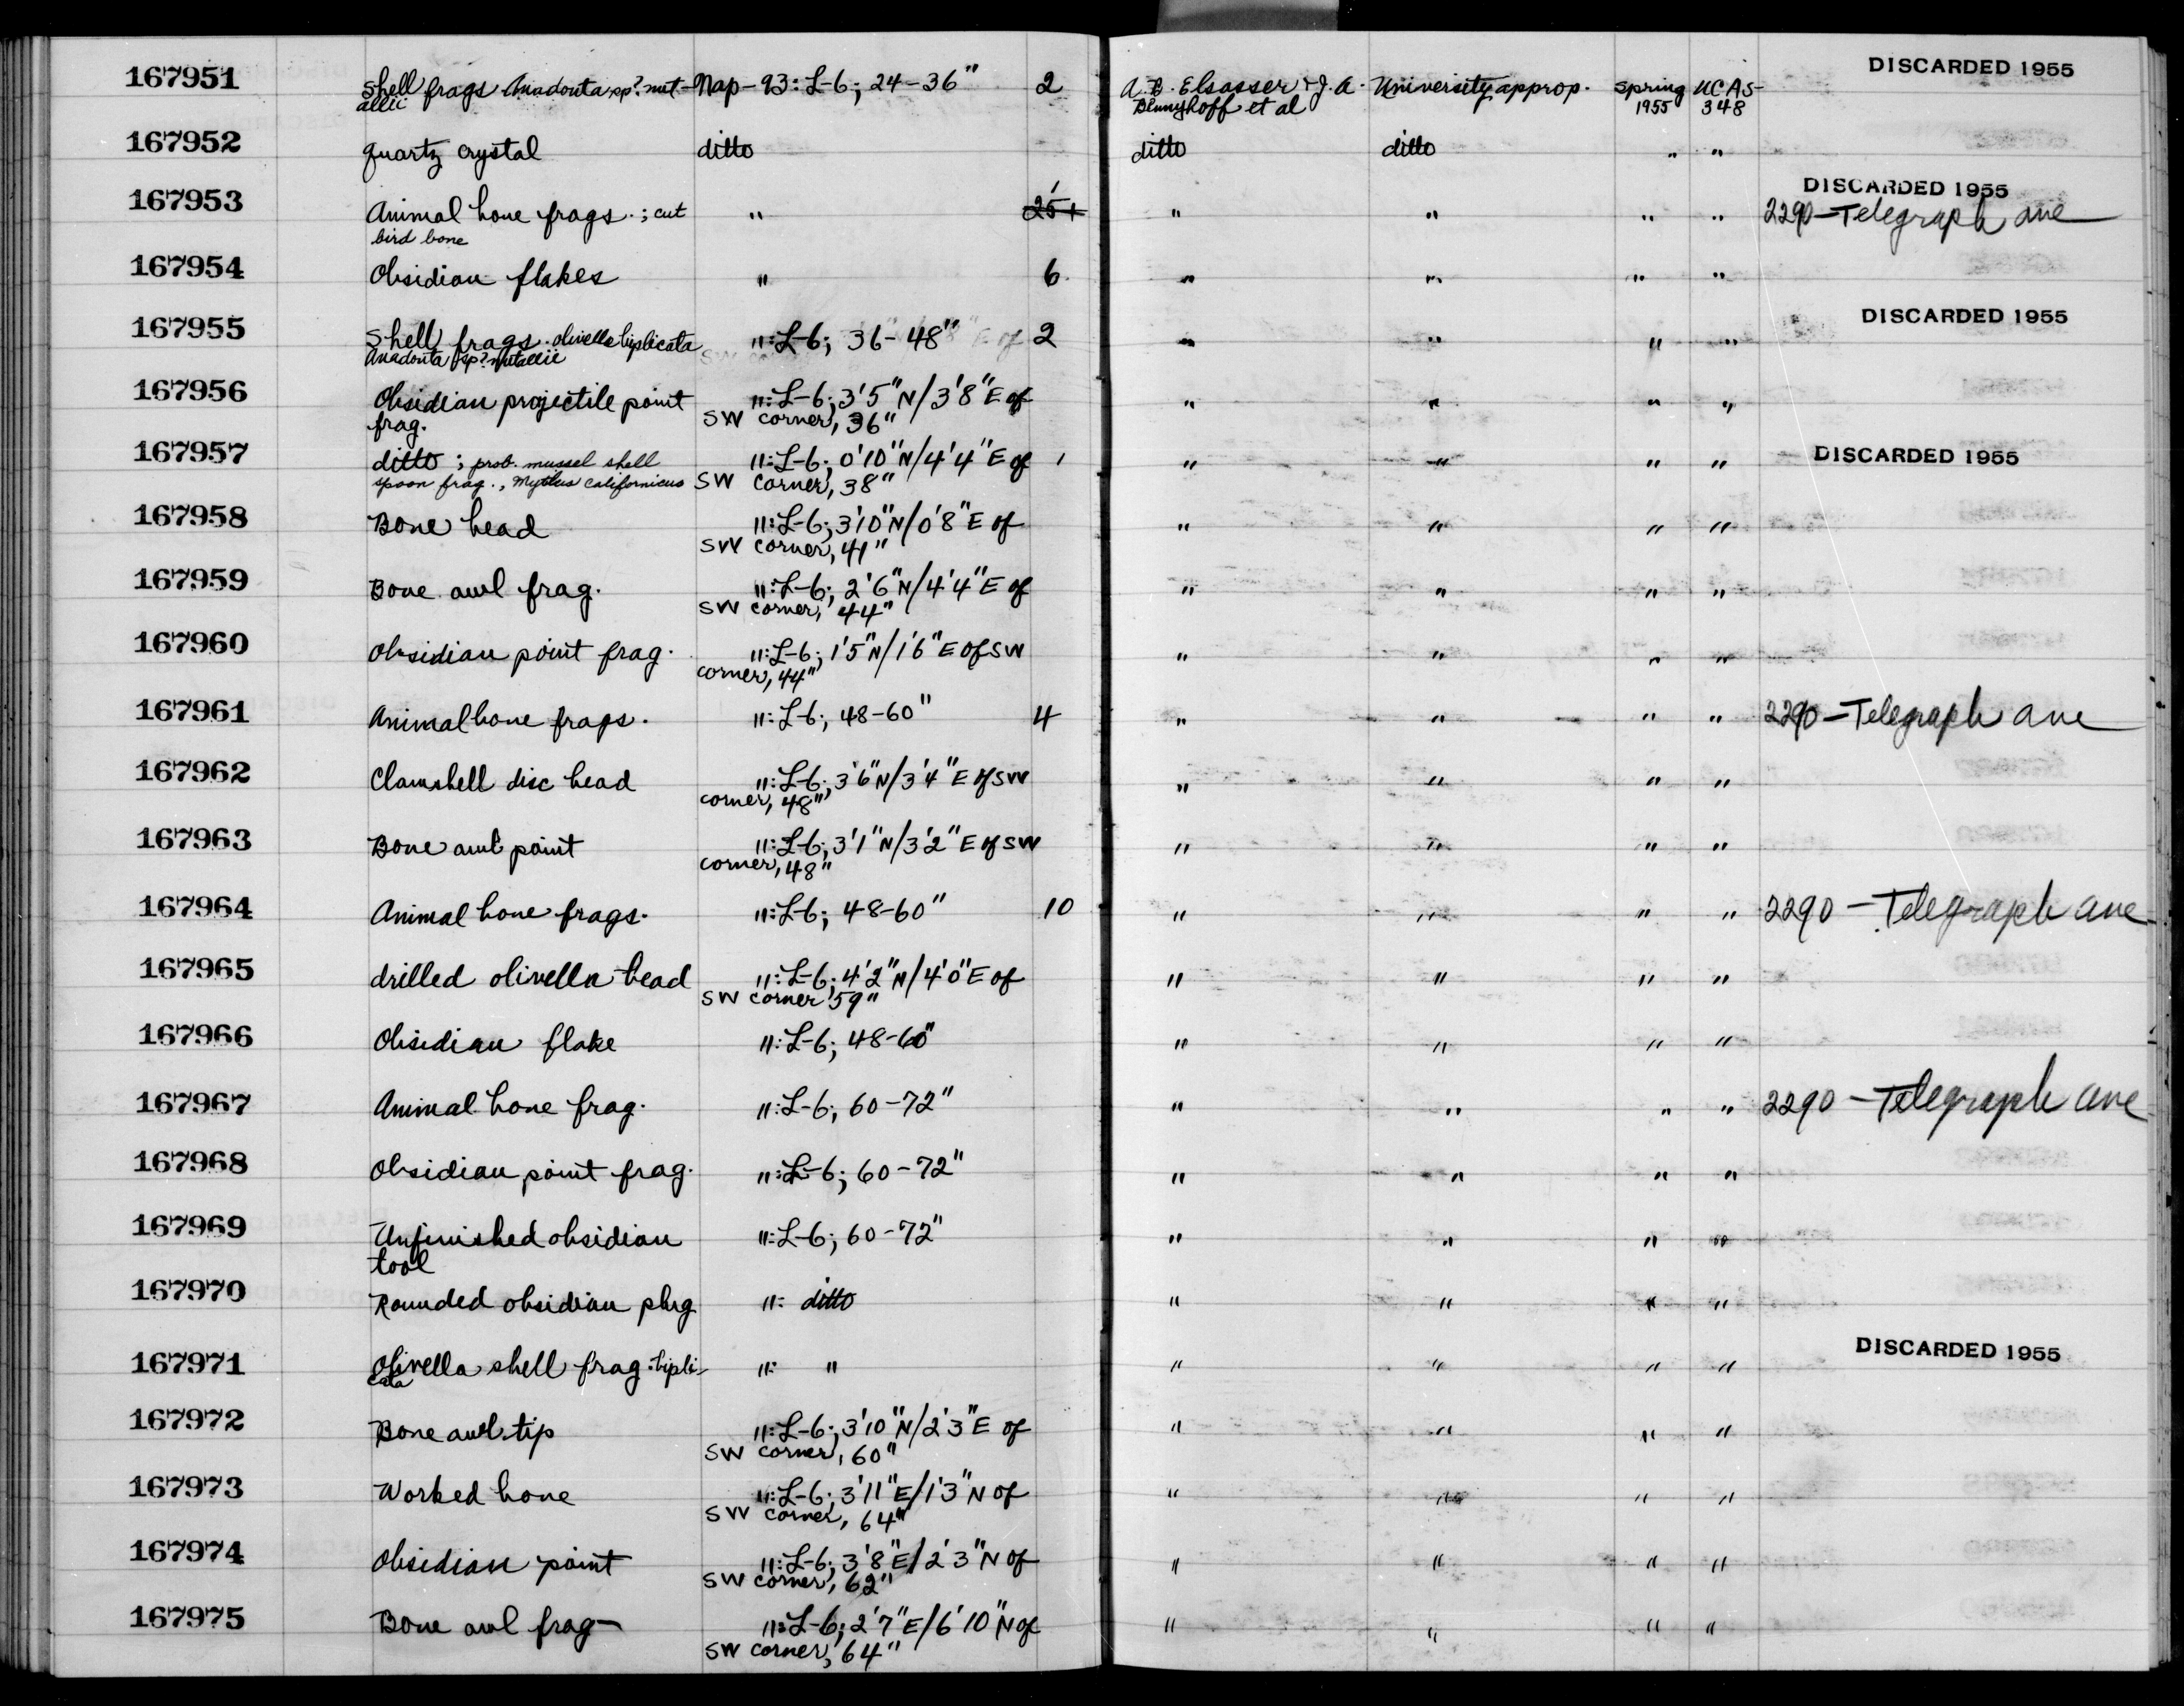 167951 Shell frags Anadonta sp? nut- Nap-93: L-6; 24-36" 2 A.B. Elsasser & J.A. University approp. Spring UCAS- DISCARDED 1955
allii Bennyhoff et al 1955 348
167952 quartz crystal ditto ditto ditto " "
167953 Animal bone frags.; cut " 25+ 1 " " " " DISCARDED 1955
bird bone 2290-Telegraph ave
167954 Obsidian flakes " 6 " " " "
167955 Shell frags. olivella biplicata ":L-6; 36-48" 2 " " " " DISCARDED 1955
Anadonta sp? nutallii
167956 Obsidian projectile point ":L-6; 3'5"N/3'8"E of " " " "
frag. SW corner, 36"
167957 ditto; prob. mussel shell ":L-6; 0'10"N/4'4"E of 1 " " " " DISCARDED 1955
spoon frag., Mytilus californicus SW corner, 38"
167958 Bone bead ":L-6; 3'10"N/0'8"E of " " " "
SW corner, 41"
167959 Bone awl frag. ":L-6; 2'6"N/4'4"E of " " " "
SW corner, 44"
167960 Obsidian point frag. ":L-6; 1'5"N/1'6"E of SW " " " "
corner, 44"
167961 Animal bone frags. ":L-6; 48-60" 4 " " " " 2290-Telegraph ave
167962 Clamshell disc bead ":L-6; 3'6"N/3'4"E of SW " " " "
corner, 48"
167963 Bone awl point ":L-6; 3'1"N/3'2"E of SW " " " "
corner, 48"
167964 Animal bone frags. ":L-6; 48-60" 10 " " " " 2290-Telegraph ave
167965 drilled olivella bead ":L-6; 4'2"N/4'0"E of " " " "
SW corner 59"
167966 Obsidian flake ":L-6; 48-60" " " " "
167967 Animal bone frag. ":L-6; 60-72" " " " " 2290-Telegraph ave
167968 Obsidian point frag. ":L-6; 60-72" " " " "
167969 Unfinished obsidian ":L-6; 60-72" " " " "
tool
167970 Rounded obsidian plug ": ditto " " " "
167971 Olivella shell frag. bipli- ": " " " " " DISCARDED 1955
cata
167972 Bone awl tip ":L-6; 3'10"N/2'3"E of " " " "
SW corner, 60"
167973 Worked bone ":L-6; 3'11"E/1'3"N of " " " "
SW corner, 64"
167974 Obsidian point ":L-6; 3'8"E/2'3"N of " " " "
SW corner, 62"
167975 Bone awl frag- ":L-6; 2'7"E/6'10"N of " " " "
SW corner, 64"